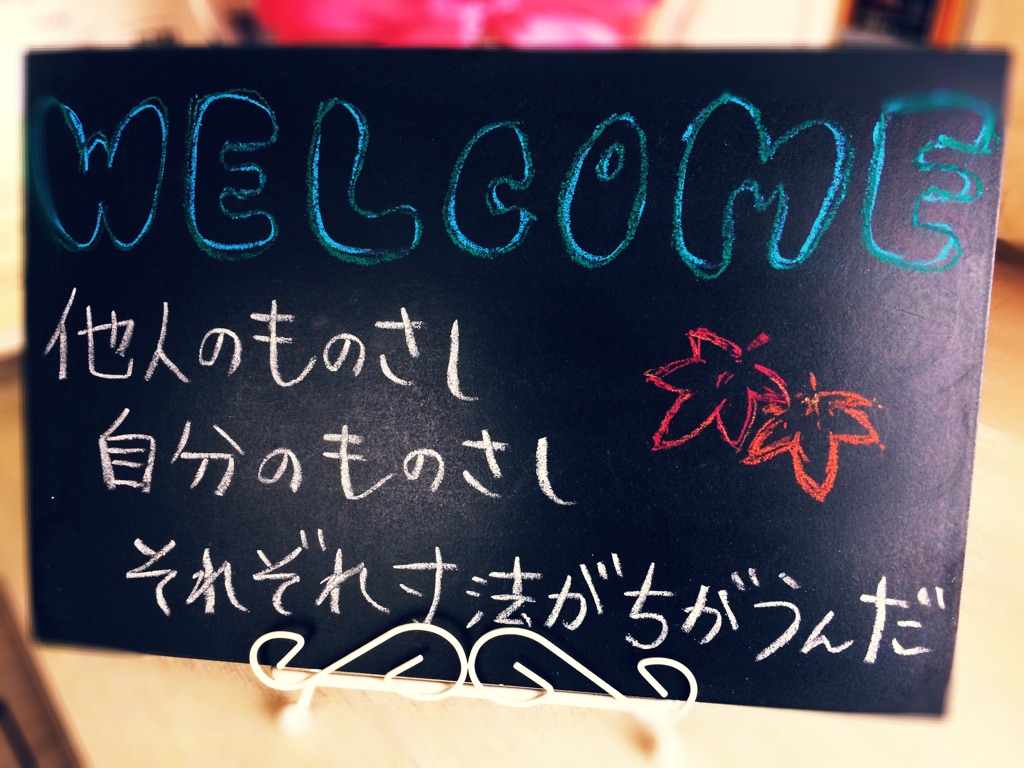 WELCOME
他人のものさし
自分のものさし
それぞれ寸法がちがうんだ